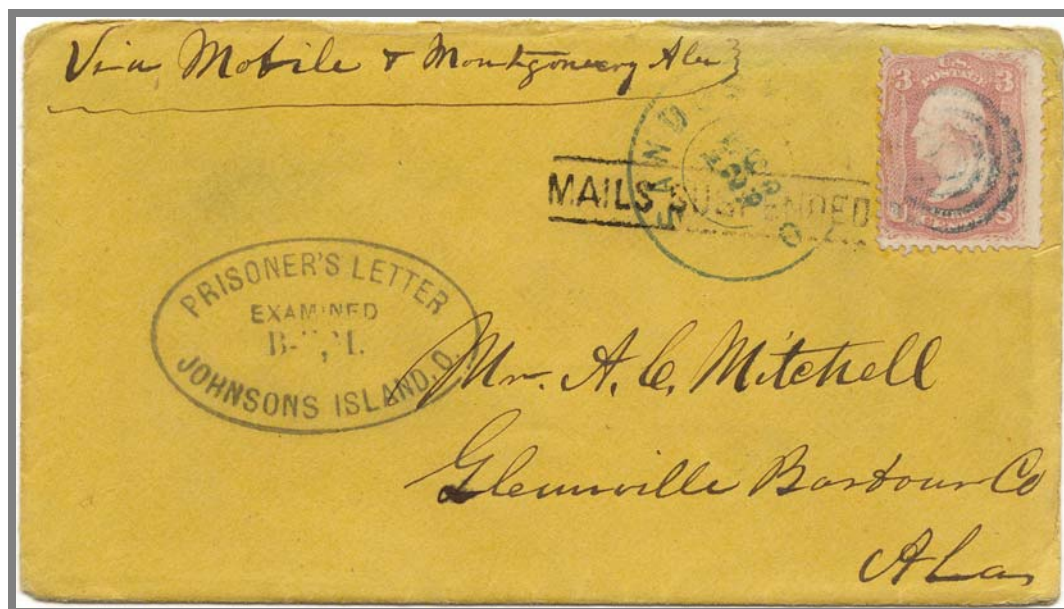 Via Mobile & Montgomery Ala
3 U.S. 3
POSTAGE
CENTS
SAND O
MAILS SUSPENDED
PRISONER'S LETTER
EXAMINED
JOHNSONS ISLAND. O.
Mr. A. C. Mitchell
Glennville Barbour Co
Ala